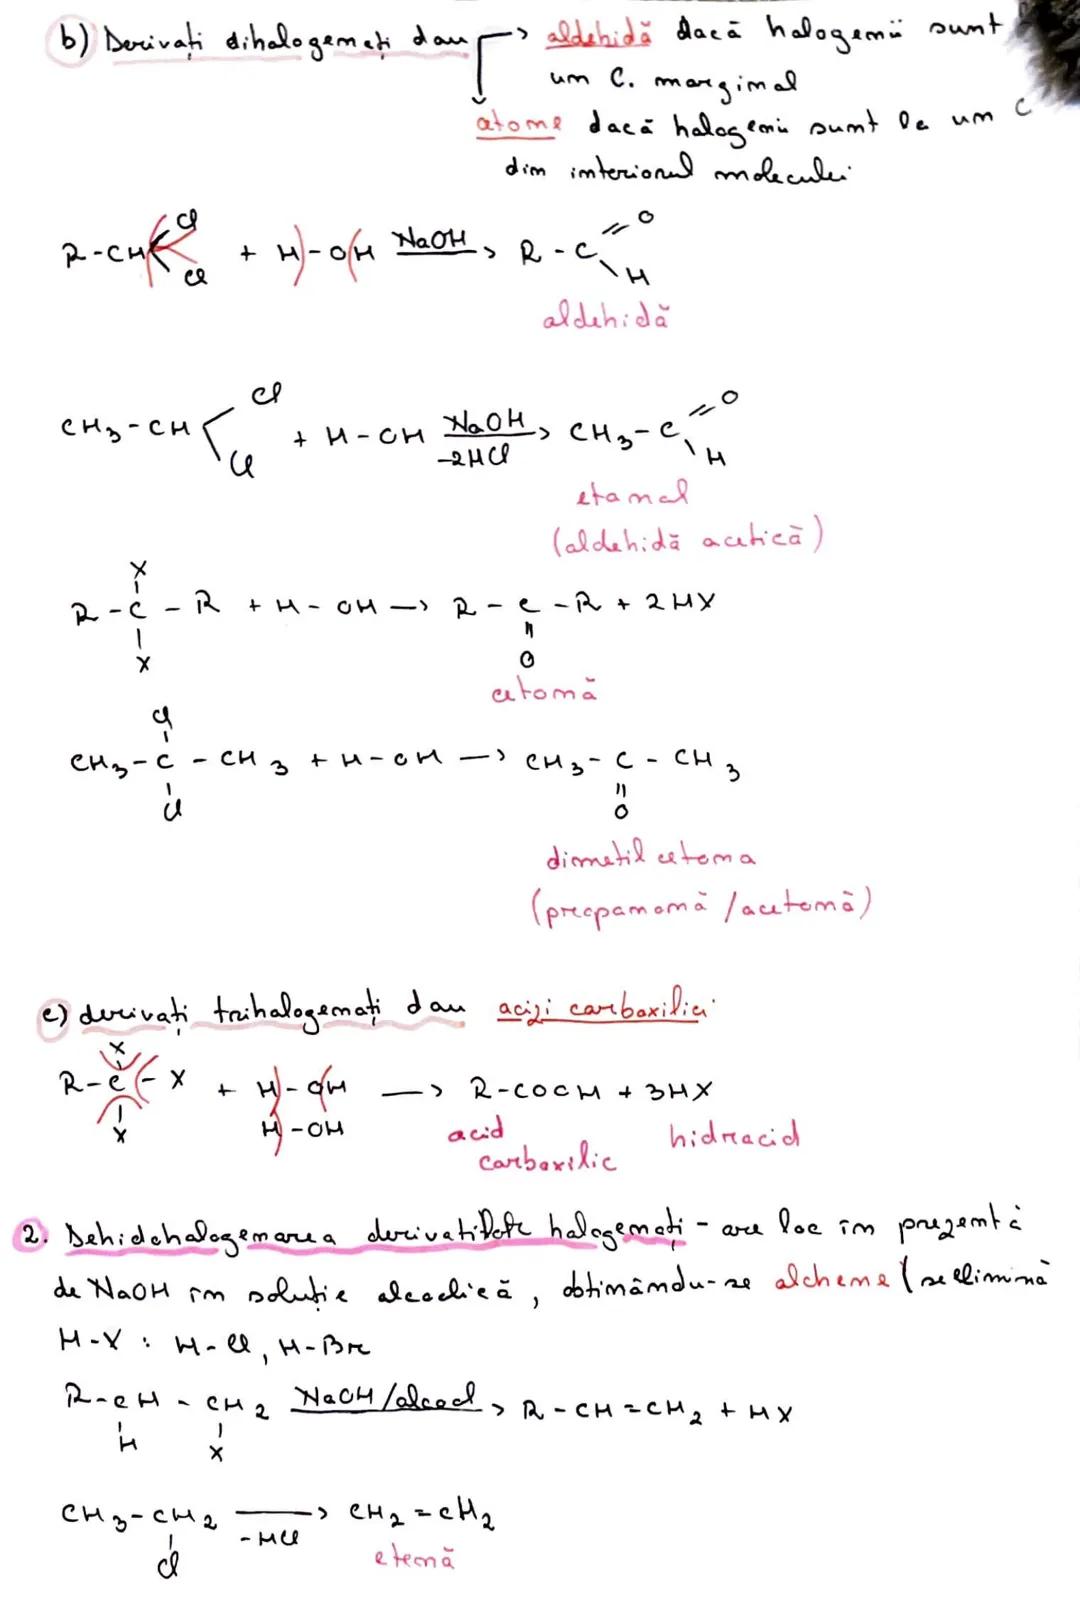 b) Derivați dihalogenați dau → aldehidă dacă halogenii sunt
un C. marginal
cetone dacă halogenii sunt la un C
din interiorul moleculei
R-CH Cl Cl + H-OH NaOH → R-C =O \H
aldehidă
CH3-CH Cl Cl + H-OH NaOH → -2HCl CH3-C =O \H
etanal
(aldehidă acetică)
X
R-C-R + H-OH → R-C-R + 2HX
X O
cetonă
Cl
CH3-C-CH3 + H-OH → CH3-C-CH3
Cl O
dimetil cetona
(propanonă/acetonă)
c) derivați trihalogenați dau acizi carboxilici
X
R-C-X + H-OH → R-COOH + 3HX
X H-OH acid hidracid
carboxilic
2. Dehidohalogenarea derivatilor halogenați - are loc în prezență
de NaOH în soluție alcoolică, obtinându-se alchene (se elimină
H-X : H-Cl, H-Br
R-CH-CH2 NaOH/alcool → R-CH=CH2 + HX
H X
CH3-CH2 → -HCl CH2=CH2
Cl etenă